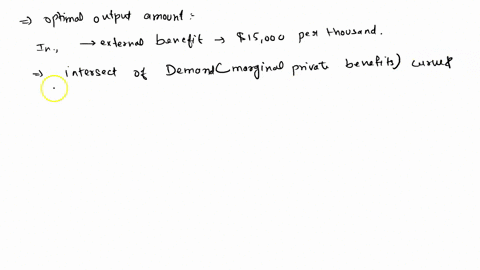 ⇒ optimal output amount :-
In., → external benefit → $15,000 per thousand.
⇒ intersect of Demand (marginal private benefits) curve &